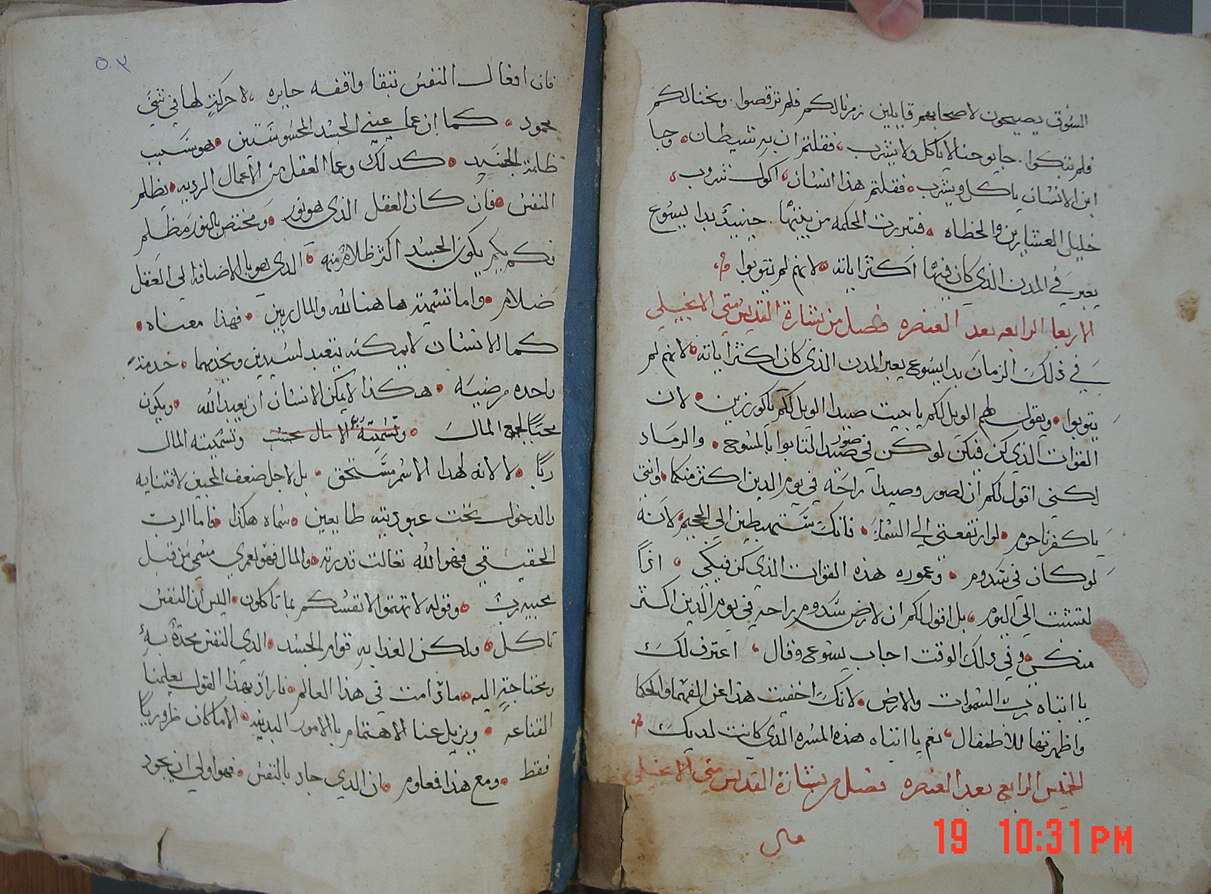 السوق يصيحون لاصحابهم قايلين زمرنا لكم فلم ترقصوا. ونحنا لكم
فلم تبكوا. جا يوحنا لا ياكل ولا يشرب، فقلتم ان به شيطان، وجا
ابن الانسان ياكل ويشرب، فقلتم هذا انسان اكول شروب،
خليل العشارين والخطاه، فتبررت الحكمه من بنيها. حينيذ بدا يسوع
يعير في المدن الذي كان فيها اكثر اياته، لانهم لم يتوبوا
الاربعا الرابعه بعد العنصره فصل من بشارة القديس متى الانجيلي
في ذلك الزمان بدا يسوع يعير المدن الذي كان اكثر اياته، لانهم لم
يتوبوا، ويقول لهم الويل لكم يا بيت صيدا الويل لكم يا كورزين، لان
القوات الذي كن فيكن لو كن في صور صيدا لتابوا بالمسوح، والرماد
لكنني اقول لكم ان لصور وصيدا راحه في يوم الدين اكثر منكما، وانتي
يا كفرناحوم، لو ارتفعتي الى السماء، فانك ستهبطين الى الجحيم، لانه
لو كان في سدوم، وعموره هذه القوات الذي كن فيكي، اذًا
لثبتت الى اليوم، بل اقول لكم ان لارض سدوم راحه في يوم الدين اكثر
منكن، وفي ذلك الوقت اجاب يسوع وقال، اعترف لك
يا ابتاه رب السموات والارض، لانك اخفيت هذا عن الفهما والحكما
واظهرتها للاطفال، نعم يا ابتاه هذه المسره الذي كانت لديك
الخميس الرابع بعد العنصره فصل من بشارة القديس متى الانجيلي
قال
19 10:31PM
فان افعال النفس تبقا واقفه حايره، لا حركة لها في شي
محمود، كما ان عما عيني الجسد المحسوستين، هو سبب
ظلمة الجسد، كذلك وعما العقل من الاعمال الرديه، يظلم
النفس، فان كان العقل الذي هو نور، ومختص بالنور مظلم
فكم بكم يكون الجسد اكثر ظلاما منه، الذي هو بالاضافه الى العقل
ضلام، واما تسميته هاهنا لله والمال ربين، فهذا معناه،
كما الانسان لا يمكنه يتعبد لسيدين ويخدمهما، خدمة
واحده مرضيه، هكذا لا يمكن الانسان ان يعبد الله، ويكون
محبًا لجمع المال، وتسميته المال
ربًا، لا لانه لهذا الاسم مستحق، بل لاجل ضعف المحبين لاقتنايه
بالدخول تحت عبوديته طايعين، سماه هكذا، فاما الرب
الحقيقي فهو الله تعالت قدرته، والمال فهو لعمري مسمى من قبل
محبيه رب، وقوله لا تهتموا لانفسكم بما تاكلون، ليس ان النفس
تاكل، ولكن الغذا به قوام الجسد، الذي النفس متحدة به
ومحتاجة اليه، ما دامت في هذا العالم، فاراد بهذا القول يعلمنا
القناعه، ويزيل عنا الاهتمام بالامور البدنيه، الا ما كان ضروريًا
فقط، ومع هذا فمعلوم، ان الذي جاد بالنفس، فهو اولى ان يجود